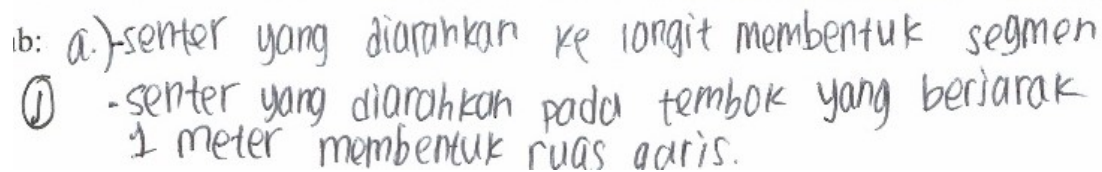 b: a.)-senter yang diarahkan ke longit membentuk segmen
① -senter yang diarahkan pada tembok yang berjarak
1 meter membentuk ruas garis.